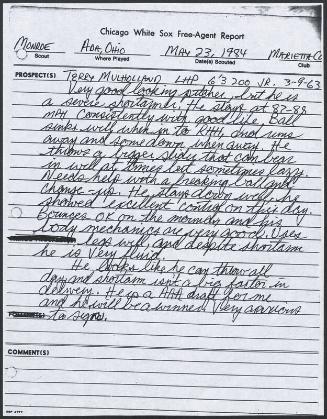 Chicago White Sox Free-Agent Report
Monroe Ada, Ohio May 23, 1984 Marietta Co
Scout Where Played Date(s) Scouted Club
PROSPECT(S) Terry Mulholland LHP 6'3 200 JR. 3-9-63
Very good looking pitcher, but he is
a severe shortarmer. He stays at 87-88
MPH consistently with good life. Ball
sinks well when in to RHH, and runs
away and some down when away. He
throws a bigger slider that can bear
in well at times but sometimes lazy.
Needs help with a breaking ball and
change-up. He stays down well, he
showed excellent control on this day.
Bounces OK on the mound and his
body mechanics are very good. Uses
legs well, and despite shortarm
he is very fluid.
He looks like he can throw all
day and shortarm isn't a big factor in
delivery. He is a AAA draft for me
and he will be a winner. Very anxious
to sign.
COMMENT(S)